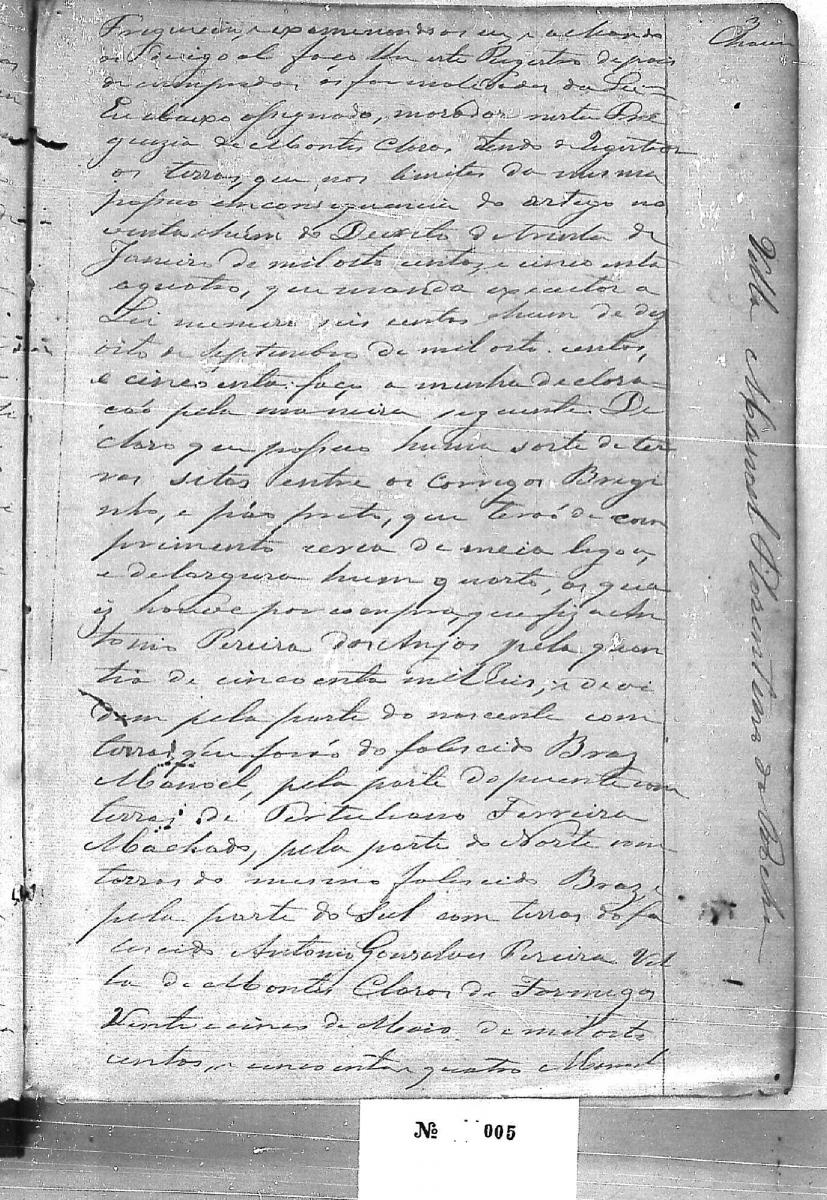 3
Chaves
Freguezia, e examenandoos eu, e achando
os Serigoal faco lhe este Rezistro depois
de cumpridas as formalidades da Lei
Eu abaixo assignado, morador nesta Fre
guezia de Montes Claros tendo de registrar
as terras, que nos limites da mesma
possuo em consequencia do artigo no
venta e hum do Decreto de trinta de
Janeiro de mil oito centos, e cincoenta
aquatro, que manda executar a
Lei numero seis centos e hum de dez
oito de Septembro de mil oito centos,
e cincoenta: faço a minha declara
cão pela maneira seguente. De
claro que possuo huma sorte de ter
ras sitas entre os corregos Breji
nho, e páo preto, que terão de com
primento cerca de meia legoa,
e de largura hum quarto, as qua
es houve por compra, que fiz a An
tonio Pereira dos Anjos pela quan
tia de cincoenta mil Reis; e devi
dem pela parte do nascente com
terras que forão do falescido Braz
Manoel, pela parte do puente com
terras de Pertuliano Ferreira
Machado, pela parte do Norte com
terras do mesmo falescido Braz, e
pela parte do Sul com terras do fa
lescido Antonio Gonsalves Pereira Vil
la de Montes Claros de Formigas
Vinte e cinco de Maio de mil oito
centos, e cincoenta e quatro Manoel
Manoel Florentino da
Nº 005